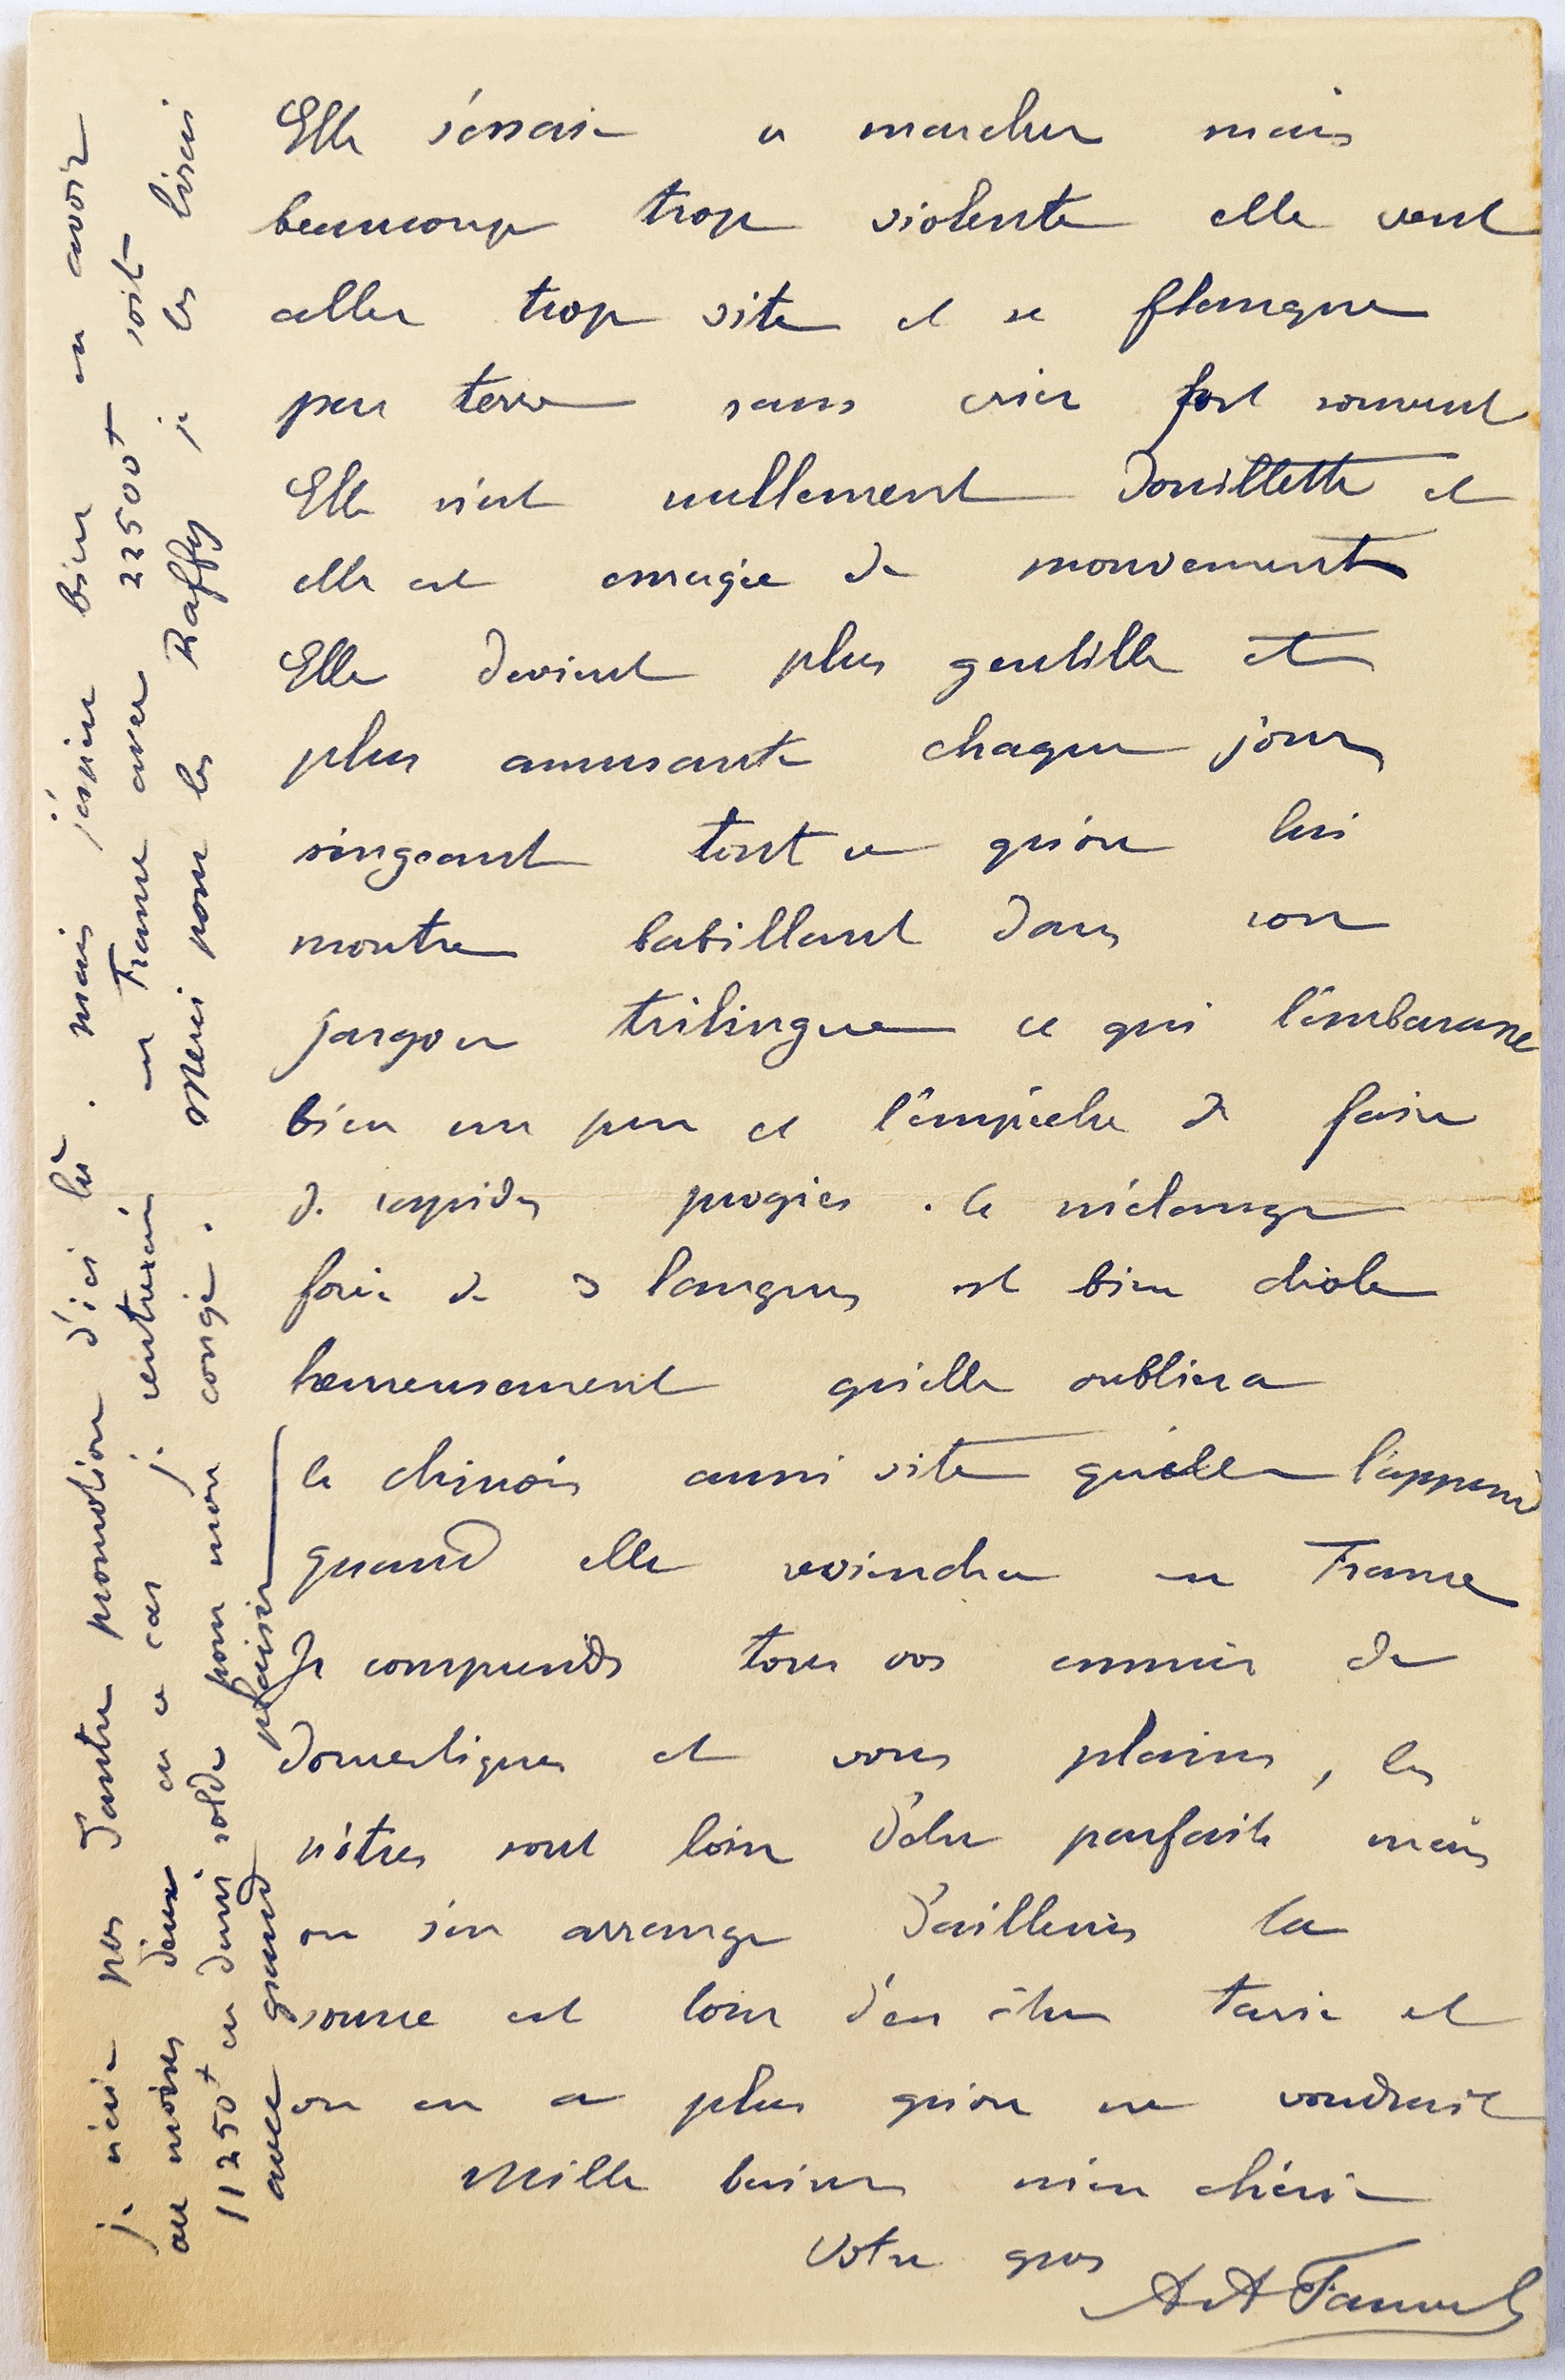 Elle s'essaie a marcher mais
beaucoup trop violente elle veut
aller trop vite et se flanque
par terre sans crier fort souvent
Elle n'est nullement douillette et
elle est enragée de mouvement
Elle devient plus gentille et
plus amusante chaque jour
singeant tout ce qu'on lui
montre babillant dans son
jargon trilingue ce qui l'embarasse
bien un peu et l'empêche de faire
de rapides progrès . le mélange
forcé de 3 langues est bien drôle
heureusement qu'elle oubliera
le chinois aussi vite qu'elle l'apprend
quand elle reviendra en France
Je comprends tous vos ennuis de
domestiques et vous plains , les
nôtres sont loin d'être parfaits mais
on s'en arrange d'ailleurs la
source est loin d'en être tarie et
on en a plus qu'on ne voudrait
Mille baisers mien chérie
Votre gros
je n'ai pas d'autre promotion d'ici là . mais j'espère bien en avoir
au moins deux en ce cas je rentrerai en France avec 22500+ soit
11250+ en demi solde pour mon congé . Merci pour les Raffy je les lirai
avec grand plaisir